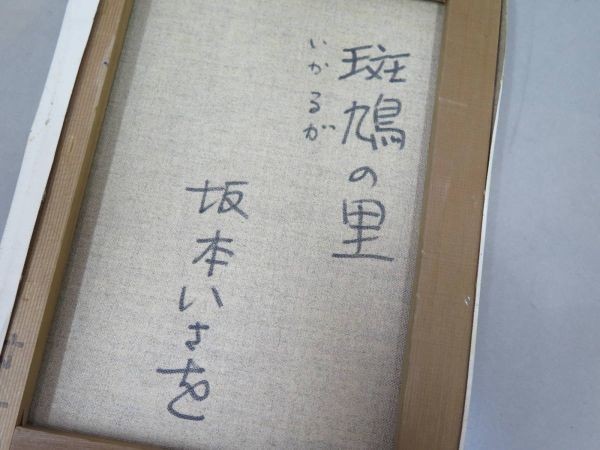 斑鳩の里
いかるが
坂本いさを